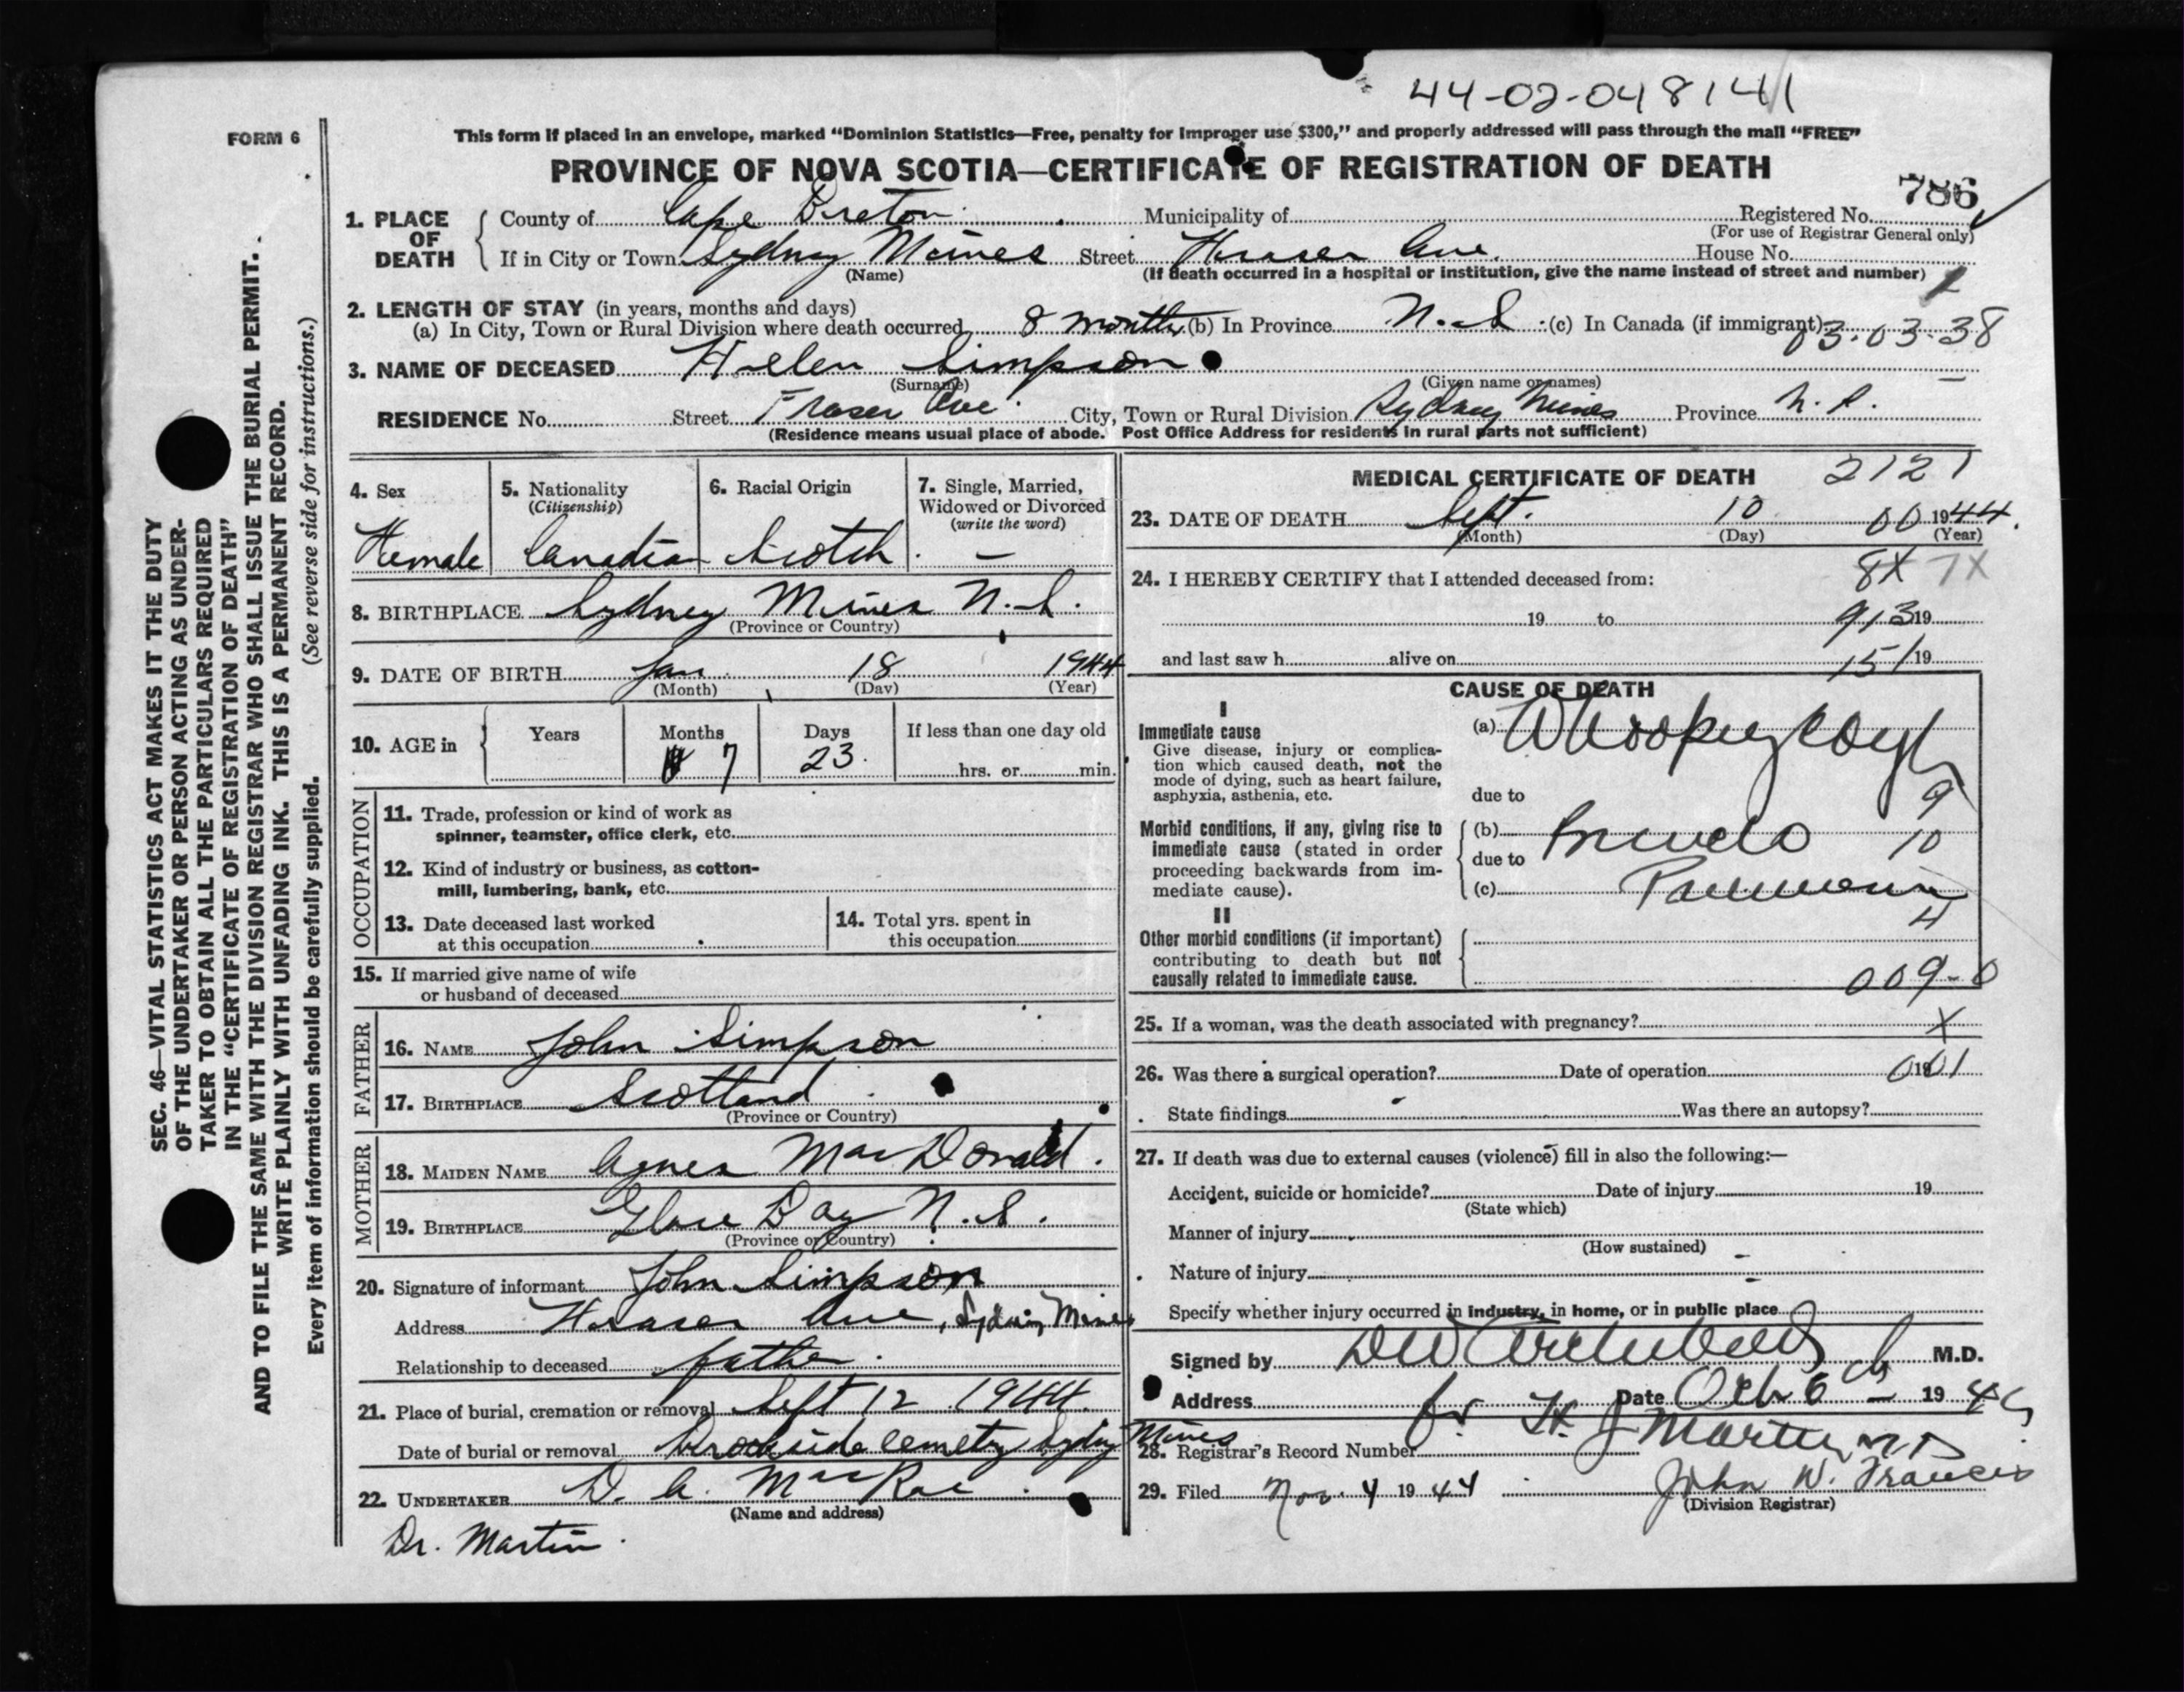 44-02-048141
FORM 6
This form if placed in an envelope, marked “Dominion Statistics—Free, penalty for improper use $300,” and properly addressed will pass through the mail “FREE”
PROVINCE OF NOVA SCOTIA—CERTIFICATE OF REGISTRATION OF DEATH
786
1. PLACE OF DEATH
County of Cape Breton Municipality of Registered No.
(For use of Registrar General only)
If in City or Town Sydney Mines Street Fraser Ave. House No.
(Name) (If death occurred in a hospital or institution, give the name instead of street and number)
1
2. LENGTH OF STAY (in years, months and days)
(a) In City, Town or Rural Division where death occurred 8 months (b) In Province N.S. (c) In Canada (if immigrant)
03-03-38
3. NAME OF DECEASED Helen Simpson
(Surname) (Given name or names)
RESIDENCE No. Street Fraser Ave. City, Town or Rural Division Sydney Mines Province N.S.
(Residence means usual place of abode. Post Office Address for residents in rural parts not sufficient)
SEC. 46—VITAL STATISTICS ACT MAKES IT THE DUTY
OF THE UNDERTAKER OR PERSON ACTING AS UNDER-
TAKER TO OBTAIN ALL THE PARTICULARS REQUIRED
IN THE “CERTIFICATE OF REGISTRATION OF DEATH”
AND TO FILE THE SAME WITH THE DIVISION REGISTRAR WHO SHALL ISSUE THE BURIAL PERMIT.
WRITE PLAINLY WITH UNFADING INK. THIS IS A PERMANENT RECORD.
Every item of information should be carefully supplied. (See reverse side for instructions.)
4. Sex
Female
5. Nationality
(Citizenship)
Canadian
6. Racial Origin
Scotch
7. Single, Married,
Widowed or Divorced
(write the word)
—
8. BIRTHPLACE Sydney Mines N.S.
(Province or Country)
9. DATE OF BIRTH Jan 18 1944
(Month) (Day) (Year)
10. AGE in
Years Months Days If less than one day old
7 23 hrs. or min.
OCCUPATION
11. Trade, profession or kind of work as
spinner, teamster, office clerk, etc.
12. Kind of industry or business, as cotton-
mill, lumbering, bank, etc.
13. Date deceased last worked
at this occupation
14. Total yrs. spent in
this occupation
15. If married give name of wife
or husband of deceased
FATHER
16. NAME John Simpson
17. BIRTHPLACE Scotland
(Province or Country)
MOTHER
18. MAIDEN NAME Agnes MacDonald.
19. BIRTHPLACE Glace Bay N.S.
(Province or Country)
20. Signature of informant John Simpson
Address Fraser Ave, Sydney Mines
Relationship to deceased father
21. Place of burial, cremation or removal Sept 12 1944
Date of burial or removal Brookside Cemetry Sydney Mines
22. UNDERTAKER D. A. MacRae
(Name and address)
Dr. Martin
MEDICAL CERTIFICATE OF DEATH
2121
23. DATE OF DEATH Sept. 10 00 1944.
(Month) (Day) (Year)
24. I HEREBY CERTIFY that I attended deceased from:
8X 7X
19 to 913 19
and last saw h alive on 151 19
CAUSE OF DEATH
I
Immediate cause
Give disease, injury or complica-
tion which caused death, not the
mode of dying, such as heart failure,
asphyxia, asthenia, etc.
(a) Whooping Cough
due to
9
Morbid conditions, if any, giving rise to
immediate cause (stated in order
proceeding backwards from im-
mediate cause).
(b) Broncho
10
due to
(c) Pneumonia
4
II
Other morbid conditions (if important)
contributing to death but not
causally related to immediate cause.
009-0
25. If a woman, was the death associated with pregnancy? X
26. Was there a surgical operation? Date of operation 19
State findings Was there an autopsy?
27. If death was due to external causes (violence) fill in also the following:—
Accident, suicide or homicide? Date of injury 19
(State which)
Manner of injury
(How sustained)
Nature of injury
Specify whether injury occurred in industry, in home, or in public place
Signed by DW Archibald M.D.
Address Date Oct 6 19 
for H. J Martin M.D.
28. Registrar's Record Number
29. Filed Nov. 4 1944 John W. Francis
(Division Registrar)